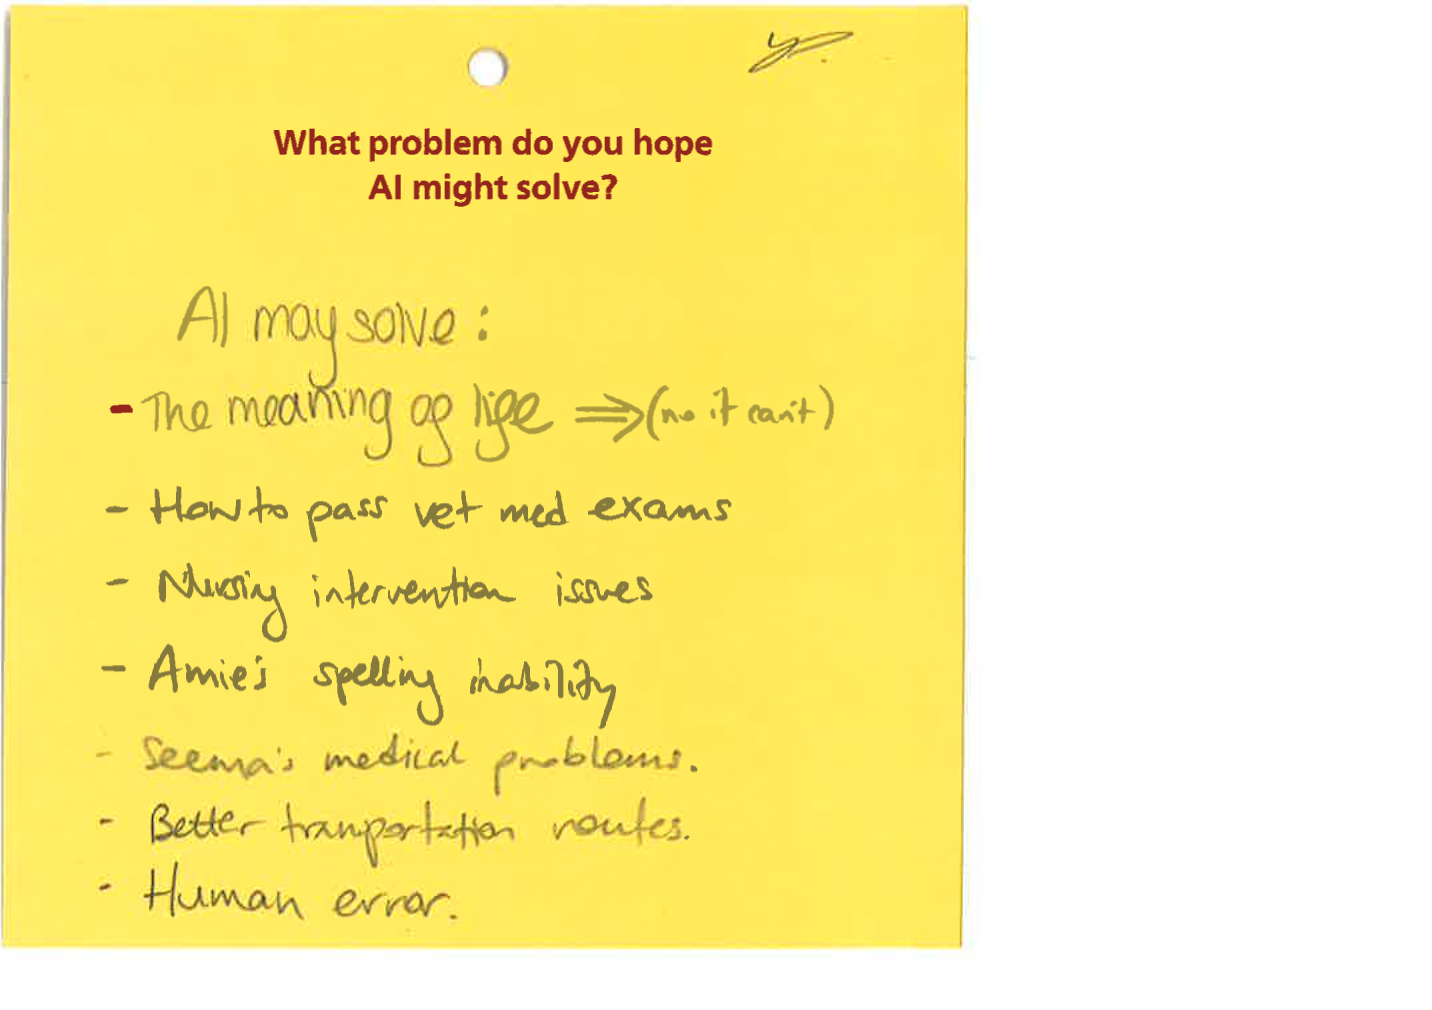 What problem do you hope
AI might solve?
AI may solve:
- The meaning of life ⇒ (no it can't)
- How to pass vet med exams
- Nursing intervention issues
- Amie's spelling inability
- Seema's medical problems.
- Better tranportation routes.
- Human error.